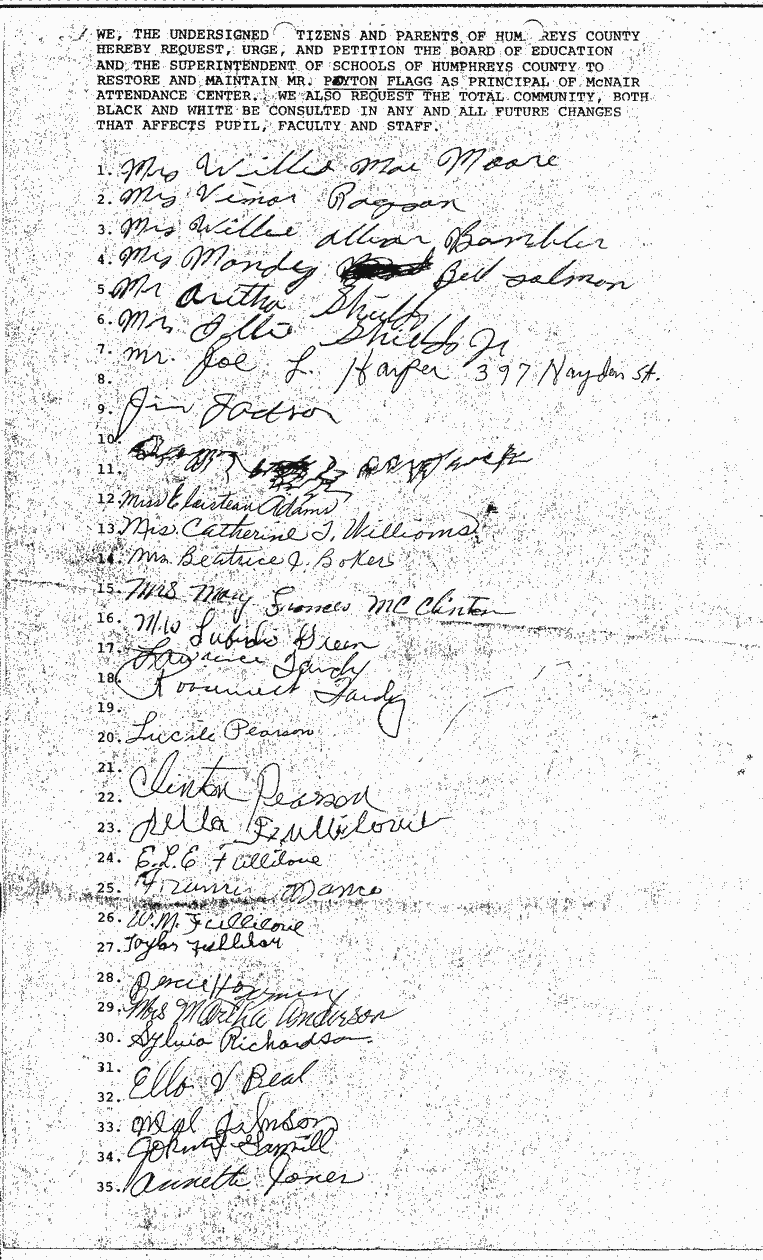 WE, THE UNDERSIGNED TIZENS AND PARENTS OF HUM REYS COUNTY
HEREBY REQUEST, URGE, AND PETITION THE BOARD OF EDUCATION
AND THE SUPERINTENDENT OF SCHOOLS OF HUMPHREYS COUNTY TO
RESTORE AND MAINTAIN MR. PEYTON FLAGG AS PRINCIPAL OF McNAIR
ATTENDANCE CENTER. WE ALSO REQUEST THE TOTAL COMMUNITY, BOTH
BLACK AND WHITE BE CONSULTED IN ANY AND ALL FUTURE CHANGES
THAT AFFECTS PUPIL, FACULTY AND STAFF.
1. Mrs Willie Mae Moore
2. Mrs Vimar
3. Mrs Willie Bambler
4. Mrs Mandy Bell Salmon
5. Mr Aritha Shields
6. Mrs Ollie Shields Jr
7. Mr. Joe L. Harper 397 Hayden St.
8.
9. Jim Jackson
10.
11.
12. Miss Adams
13. Mrs. Catherine J. Williams
14. Mrs. Beatrice J. Bokers
15. Mrs Mary Frances McClinton
16. Green
17. Lawrence Tardy
18. Roosevelt Tardy
19.
20. Lucile Pearson
21.
22. Clinton Pearson
23. Della Fullilove
24. E.L.E Fullilove
25.
26. W.M. Fullilove
27. Taylor
28.
29. Mrs Martha Anderson
30. Sylvia Richardson
31.
32. Ella V Beal
33. Johnson
34.
35. Annette Jones